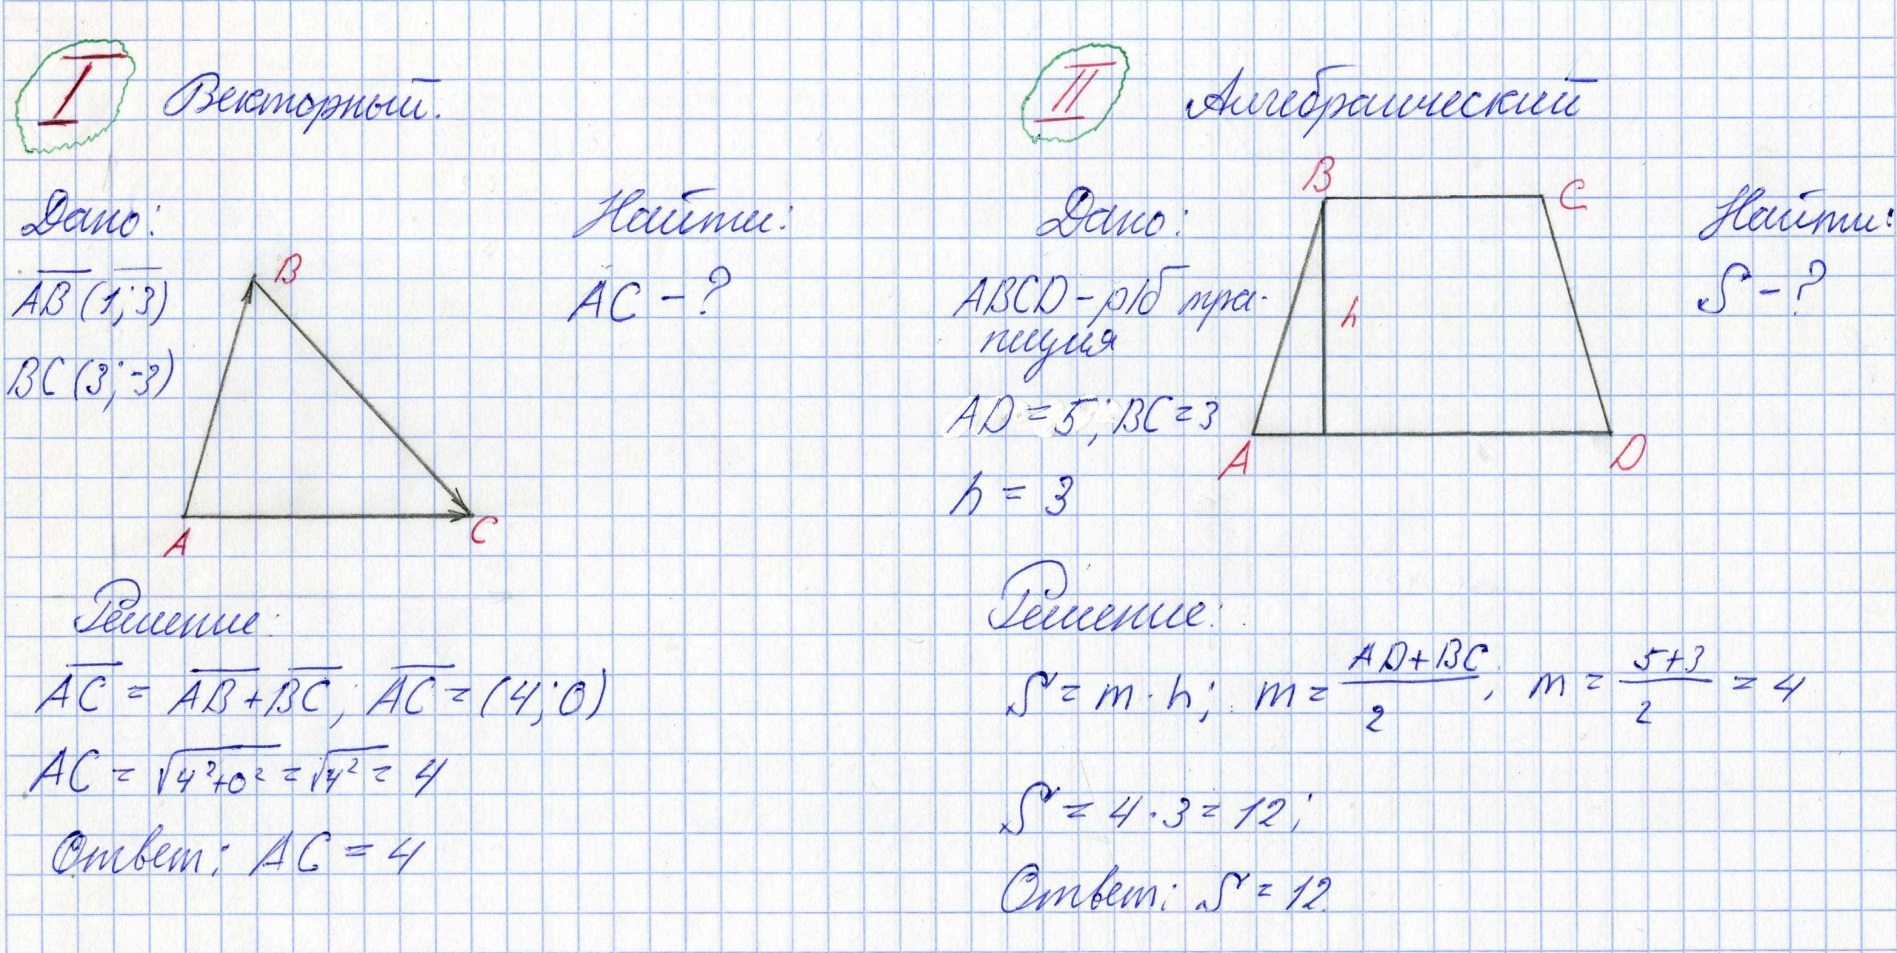 I Векторный.
Дано:
Найти:
AB (1; 3)
AC - ?
BC (3; -3)
B
A
C
Решение:
AC = AB + BC; AC = (4; 0)
AC = √4²+0² = √4² = 4
Ответ: AC = 4
II Алгебраический
Дано:
Найти:
ABCD - р/б тра-
пиция
S - ?
AD = 5; BC = 3
h = 3
B
C
h
A
D
Решение:
S = m · h; m = AD+BC / 2, m = 5+3 / 2 = 4
S = 4 · 3 = 12;
Ответ: S = 12.